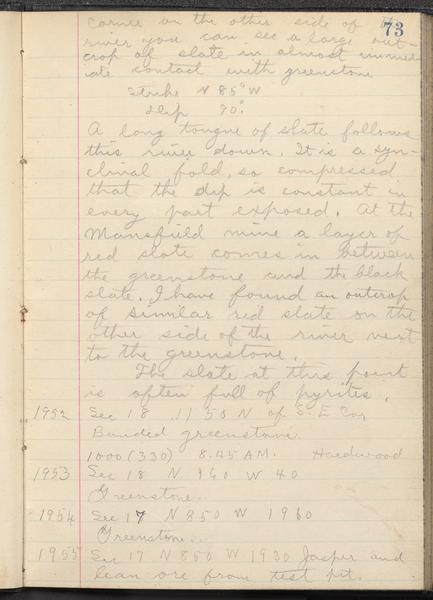 73
corner on the other side of the
river you can see a large out-
crop of slate in almost immed-
iate contact with greenstone
Strike N 85° W
dip 90°.
A long tongue of slate follows
this river down. It is a syn-
clinal fold, so compressed
that the dip is constant in
every part exposed. At the
Mansfield mine a layer of
red slate comes in between
the greenstone and the black
slate. I have found an outcrop
of similar red slate on the
other side of the river next
to the greenstone.
The slate at this point
is often full of pyrites.
1952 Sec 18 1150 N of S. E Cor
Banded greenstone
1000 (330) 8.45 AM. Hardwood
1953 Sec 18 N 960 W 40
Greenstone.
1954 Sec 17 N 850 W 1960
Greenstone.
1955 Sec 17 N 850 W 1930 Jasper and
lean ore from test pit.